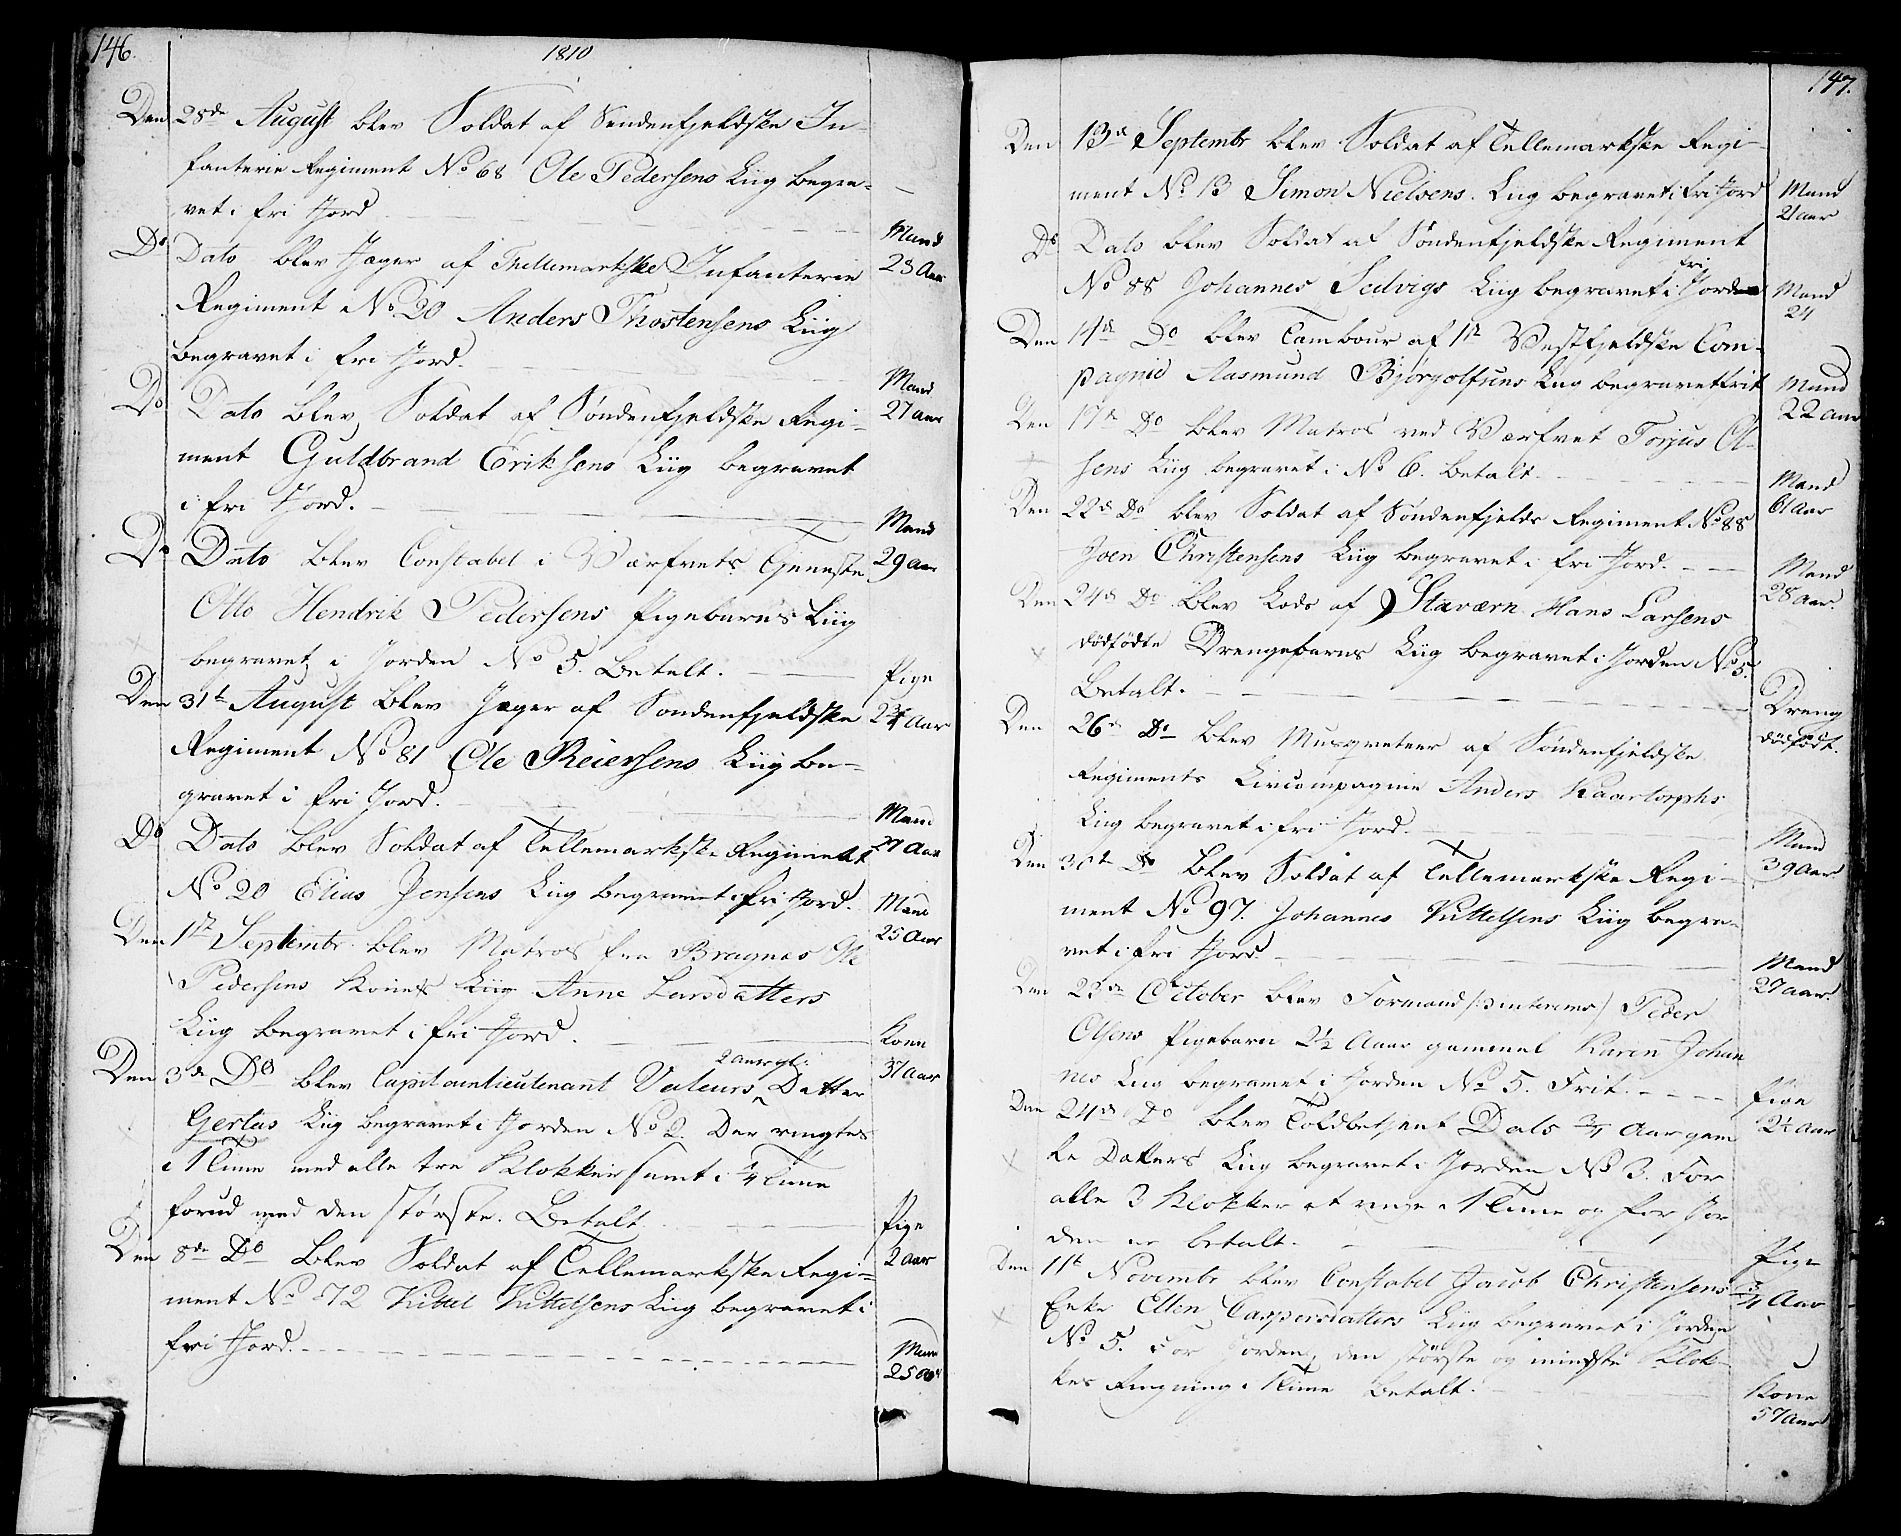 146.
1810
Den 28de August blev Soldat af Søndenfjeldske In-
fanterie Regiment No 68 Ole Pedersens Liig begra-
vet i fri Jord
Mand
23 Aar
Do Dato blev Jæger af Thellemarkske Infanterie
Regiment No 20 Anders Thostensens Liig
begravet i fri Jord.
Mand
27 aar
Do Dato blev Soldat af Søndenfjeldske Regi-
ment Guldbrand Eriksens Liig begravet
i fri Jord.
Mand
29 aar
Do Dato blev Constabel i Værfvets Tjeneste
Otto Hendrik Pedersens Pigebarns Liig
begravet i Jorden No 5. Betalt.
Pige
2¾ Aar
Den 31te August blev Jæger af Søndenfjeldske
Regiment No 81 Ole Reiersens Liig be-
gravet i fri Jord.
Mand
27 Aar
Do Dato blev Soldat af Tellemarkske Regiment
No 20 Elias Jensens Liig begravet i fri Jord.
Mand
25 Aar
Den 1te Septembr blev Matros fra Bragnæs Ole
Pedersens Kones Liig Anne Larsdatters
Liig begravet i fri Jord.
Kone
37 Aar
2 aar gl:
Den 3de Do blev Capitainlieutenant Valeurs Datter
Gertas Liig begravet i Jorden No 2. Der ringtes
i 1 Time med alle tre Klokker samt i ¼ Time
forud med den største. Betalt
Pige
2 Aar
Den 8de Do blev Soldat af Tellemarkske Regi-
ment No 72 Kittel Kittelsens Liig begravet i
fri Jord.
Mand
25 aar
147.
Den 13de Septembr blev Soldat af Tellemarkske Regi-
ment No 13 Simon Nielsens Liig begravet i fri Jord
Mand
21 aar
Do Dato blev Soldat af Søndenfjeldske Regiment
fri
No 88 Johannes Sedvigs Liig begravet i Jord
Mand
24
Den 14de Do blev Tambour af 1te Vestfjeldske Com-
pagnie Aasmund Bjørgolfsens Liig begravet frit
Mand
22 aar
Den 17de Do blev Matros ved Værfvet Torjus Ol-
sens Liig begravet i No 6. Betalt.
Mand
61 Aar
Den 22de Do blev Soldat af Søndenfjelds Regiment No 88
Joen Christensens Liig begravet i fri Jord.
Mand
28 Aar.
Den 24de Do blev Lods af Staværn Hans Larsens
dødfødte Drengebarns Liig begravet i Jorden No 5.
Betalt.
Dreng
dødfødt.
Den 26de Do blev Musqveteer af Søndenfjeldske
Regiments Livcompagnie Anders Kaartorphs
Liig begravet i fri Jord.
Mand
39 Aar
Den 30te Do blev Soldat af Tellemarkske Regi-
ment No 97. Johannes Kittelsens Liig begra-
vet i fri Jord
Mand
27 aar.
Den 23de October blev Formand (: interims :) Peder
Olsens Pigebarn 2½ Aaar gammel Karen Johan
nes Liig begravet i Jorden No 5. Frit.
Pige
2½ Aar
Den 24de Do blev Toldbetjent Dals ¾ Aar gam
le Datters Liig begravet i Jorden No 3. For
alle 3 Klokker at ringe 1 Time og for Jor
den er betalt.
Pige
¾ Aar
Den 11te Novembr blev Constabel Jacob Christensens
Enke Ellen Caspersdatters Liig begravet i Jorden
No 5. For Jorden, den største og mindste Klok-
kes Ringning 1 Time Betalt.
Kone
57 Aar